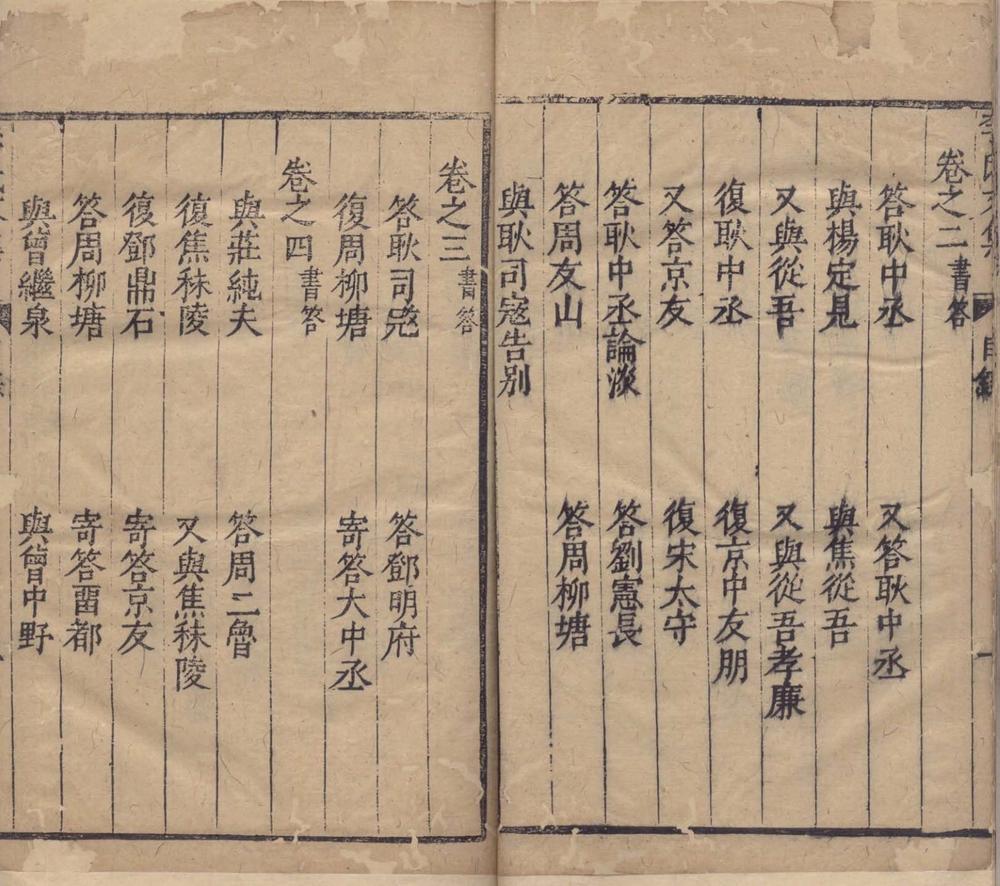 卷之二 書答
答耿中丞 又答耿中丞
與楊定見 與焦從吾
又與從吾 又與從吾孝廉
復耿中丞 復京中友朋
又答京友 復宋太守
答耿中丞論淡 答劉憲長
答周友山 答周柳塘
與耿司寇告別
卷之三 書答
答耿司寇 答鄧明府
復周柳塘 寄答大中丞
卷之四 書答
與莊純夫 答周二魯
復焦秣陵 又與焦秣陵
復鄧鼎石 寄答京友
答周柳塘 寄答畱都
與曾繼泉 與曾中野